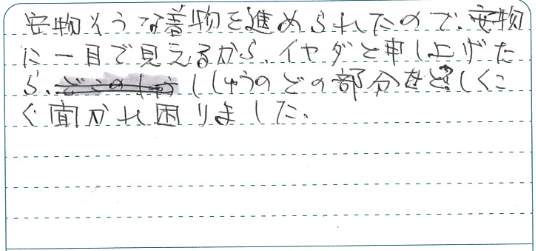 安物そうな着物を進められたので、安物
に一目で見えるから、イヤダと申し上げた
ら、ししゅうのどの部分をどしくこ
く聞かれ困りました。